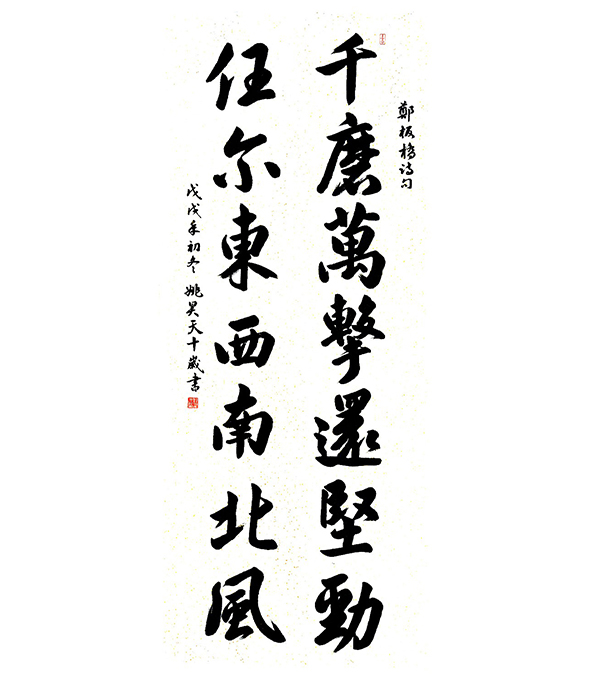 鄭板橋詩句
千磨萬擊還堅勁
任尔東西南北風
戊戌年初冬 姚昊天十歲書